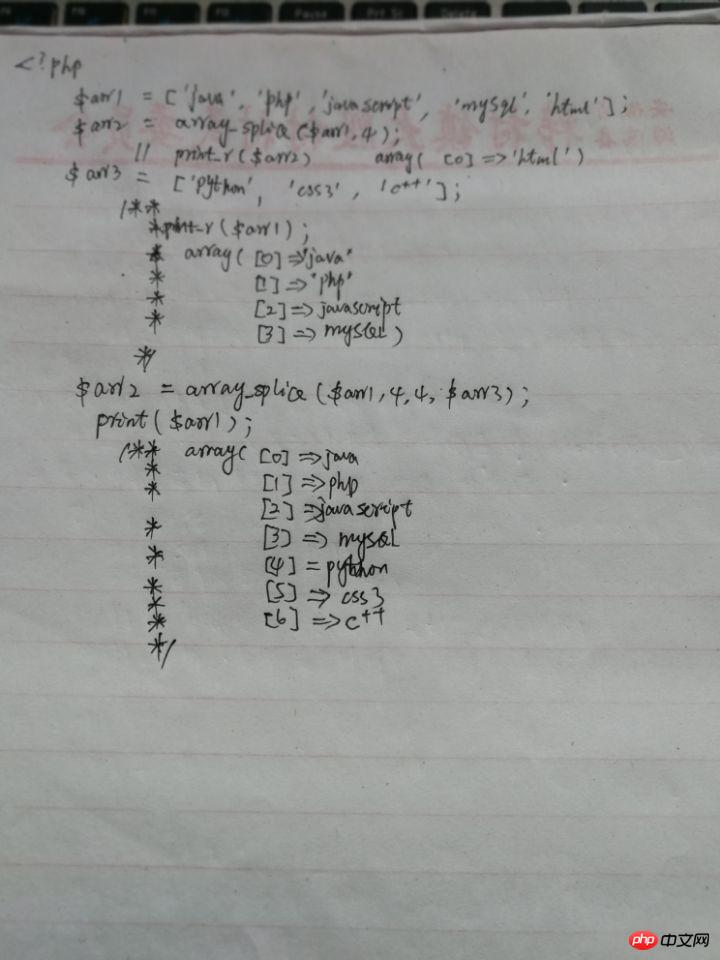 <?php
$arr1 = ['java', 'php', 'javascript', 'mysql', 'html'];
$arr2 = array_splice($arr1, 4);
// print_r($arr2) array( [0] => 'html')
$arr3 = ['python', 'css3', 'c++'];
/**
*print_r($arr1);
* array( [0] => 'java'
* [1] => 'php'
* [2] => javascript
* [3] => mySQL)
*/
$arr2 = array_splice($arr1, 4, 4, $arr3);
print($arr1);
/** array( [0] => java
* [1] => php
* [2] => javascript
* [3] => mySQL
* [4] = python
* [5] => css3
* [6] => c++
*/
php 中文网
Pause
Delete